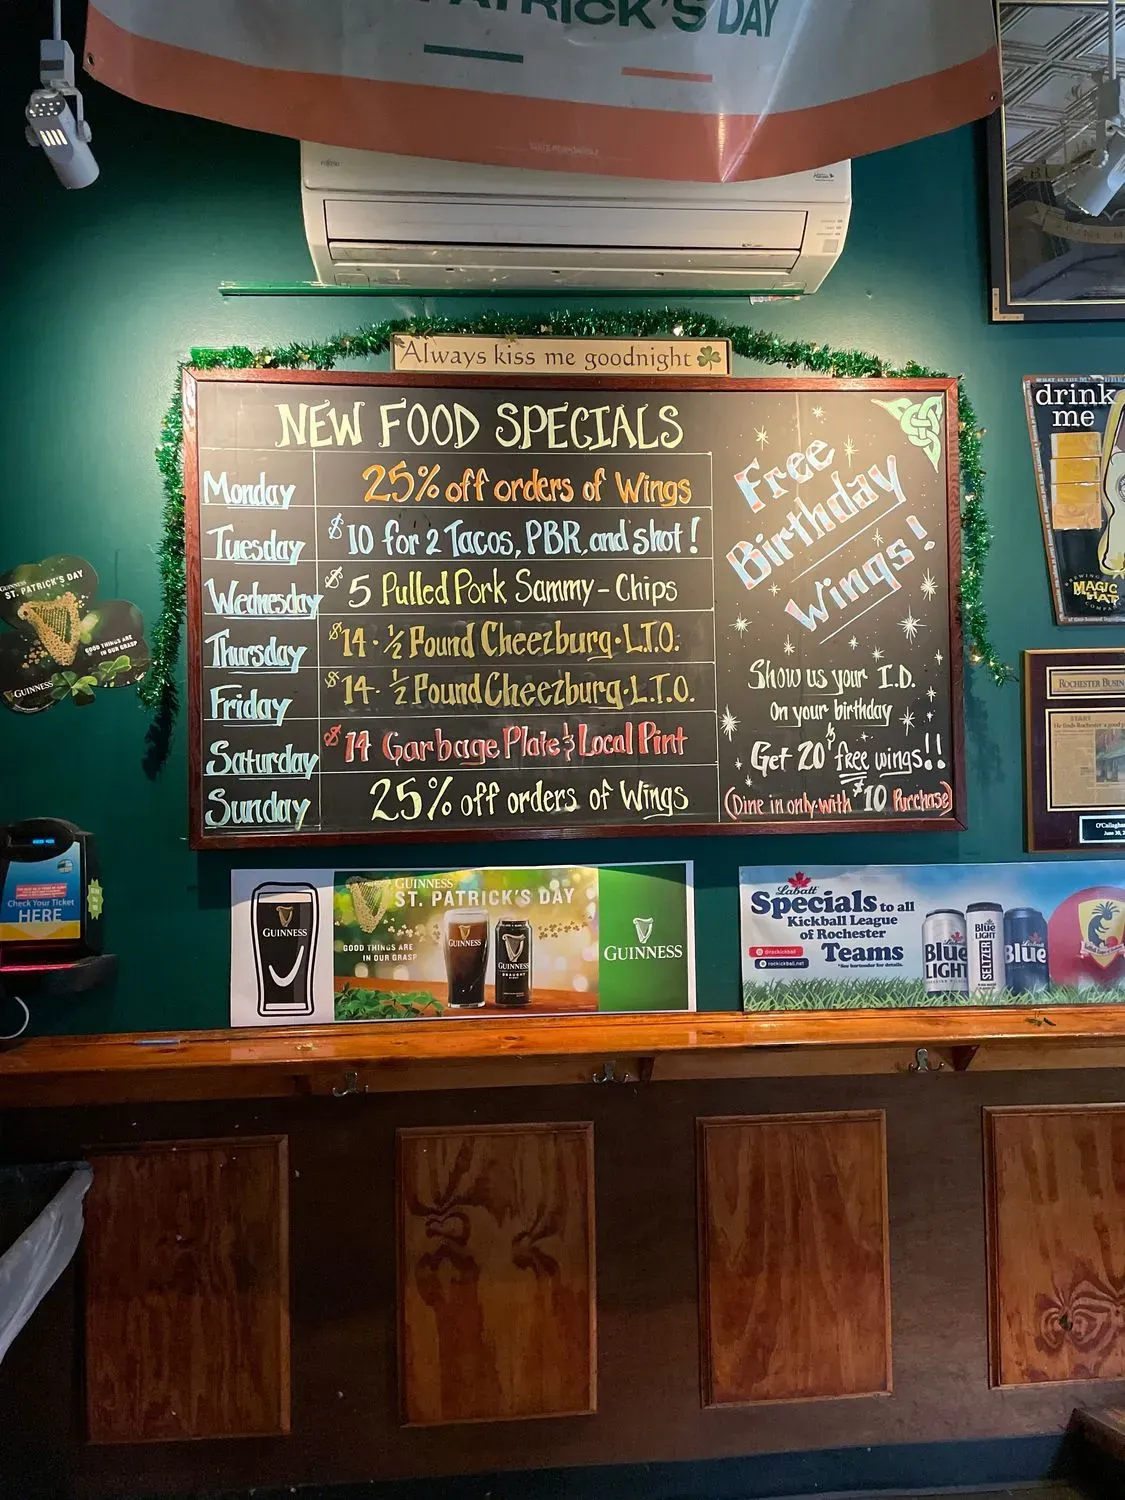 PATRICK'S DAY
FUJITSU
Always kiss me goodnight
NEW FOOD SPECIALS
Monday 25% off orders of Wings
Tuesday $10 for 2 Tacos, PBR, and shot!
Wednesday $5 Pulled Pork Sammy - Chips
Thursday $14 · ½ Pound Cheezburg · L.T.O.
Friday $14 · ½ Pound Cheezburg · L.T.O.
Saturday $14 Garbage Plate & Local Pint
Sunday 25% off orders of Wings
Free
Birthday
Wings!
Show us your I.D.
On your birthday
Get 20 free wings!!
(Dine in only with $10 Purchase)
drink
me
MAGIC
HAT
ROCHESTER BUSIN
GUINNESS
ST. PATRICK'S DAY
GOOD THINGS ARE
IN OUR GRASP
GUINNESS
Check Your Ticket
HERE
GUINNESS
GUINNESS
ST. PATRICK'S DAY
GOOD THINGS ARE
IN OUR GRASP
GUINNESS
GUINNESS
GUINNESS
Labatt
Specials to all
Kickball League
of Rochester
Teams
*See bartender for details.
@rockickball
rockickball.net
Labatt
Blue
LIGHT
Blue
LIGHT
SELTZER
Labatt
Blue